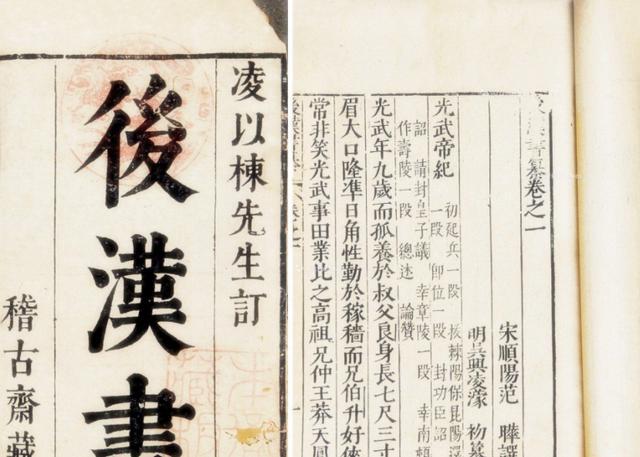 凌以棟先生訂
後漢書
稽古齋藏
後漢書纂卷之一
宋順陽范曄譔
明吳興凌濛初纂
光武帝紀
初起兵一段
拔棘陽保昆陽
一段
即位一段
封功臣詔
詔
請封皇子議
幸章陵一段
幸南頓
作壽陵一段
總述
論贊
光武年九歲而孤養於叔父良身長七尺三寸
眉大口隆準日角性勤於稼穡而兄伯升好俠
常非笑光武事田業比之高祖兄仲王莽天鳳